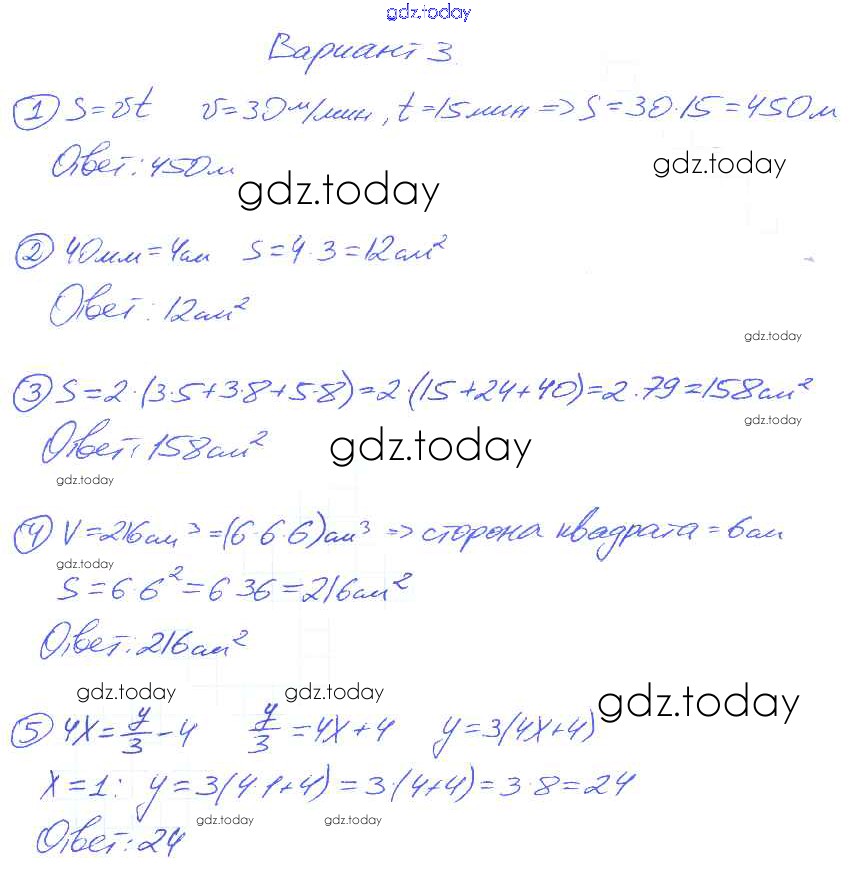 gdz.today
Вариант 3.
① S=vt v=30м/мин, t=15мин => S=30·15=450м
Ответ: 450м
gdz.today
gdz.today
② 40мм=4см S=4·3=12см²
Ответ: 12см²
gdz.today
③ S=2·(3·5+3·8+5·8)=2·(15+24+40)=2·79=158см²
gdz.today
Ответ: 158см²
gdz.today
gdz.today
④ V=216см³=(6·6·6)см³ => сторона квадрата=6см
gdz.today
S=6·6²=6·36=216см²
Ответ: 216см²
gdz.today gdz.today gdz.today
⑤ 4x=y/3-4 y/3=4x+4 y=3(4x+4)
x=1: y=3(4·1+4)=3·(4+4)=3·8=24
gdz.today gdz.today
Ответ: 24